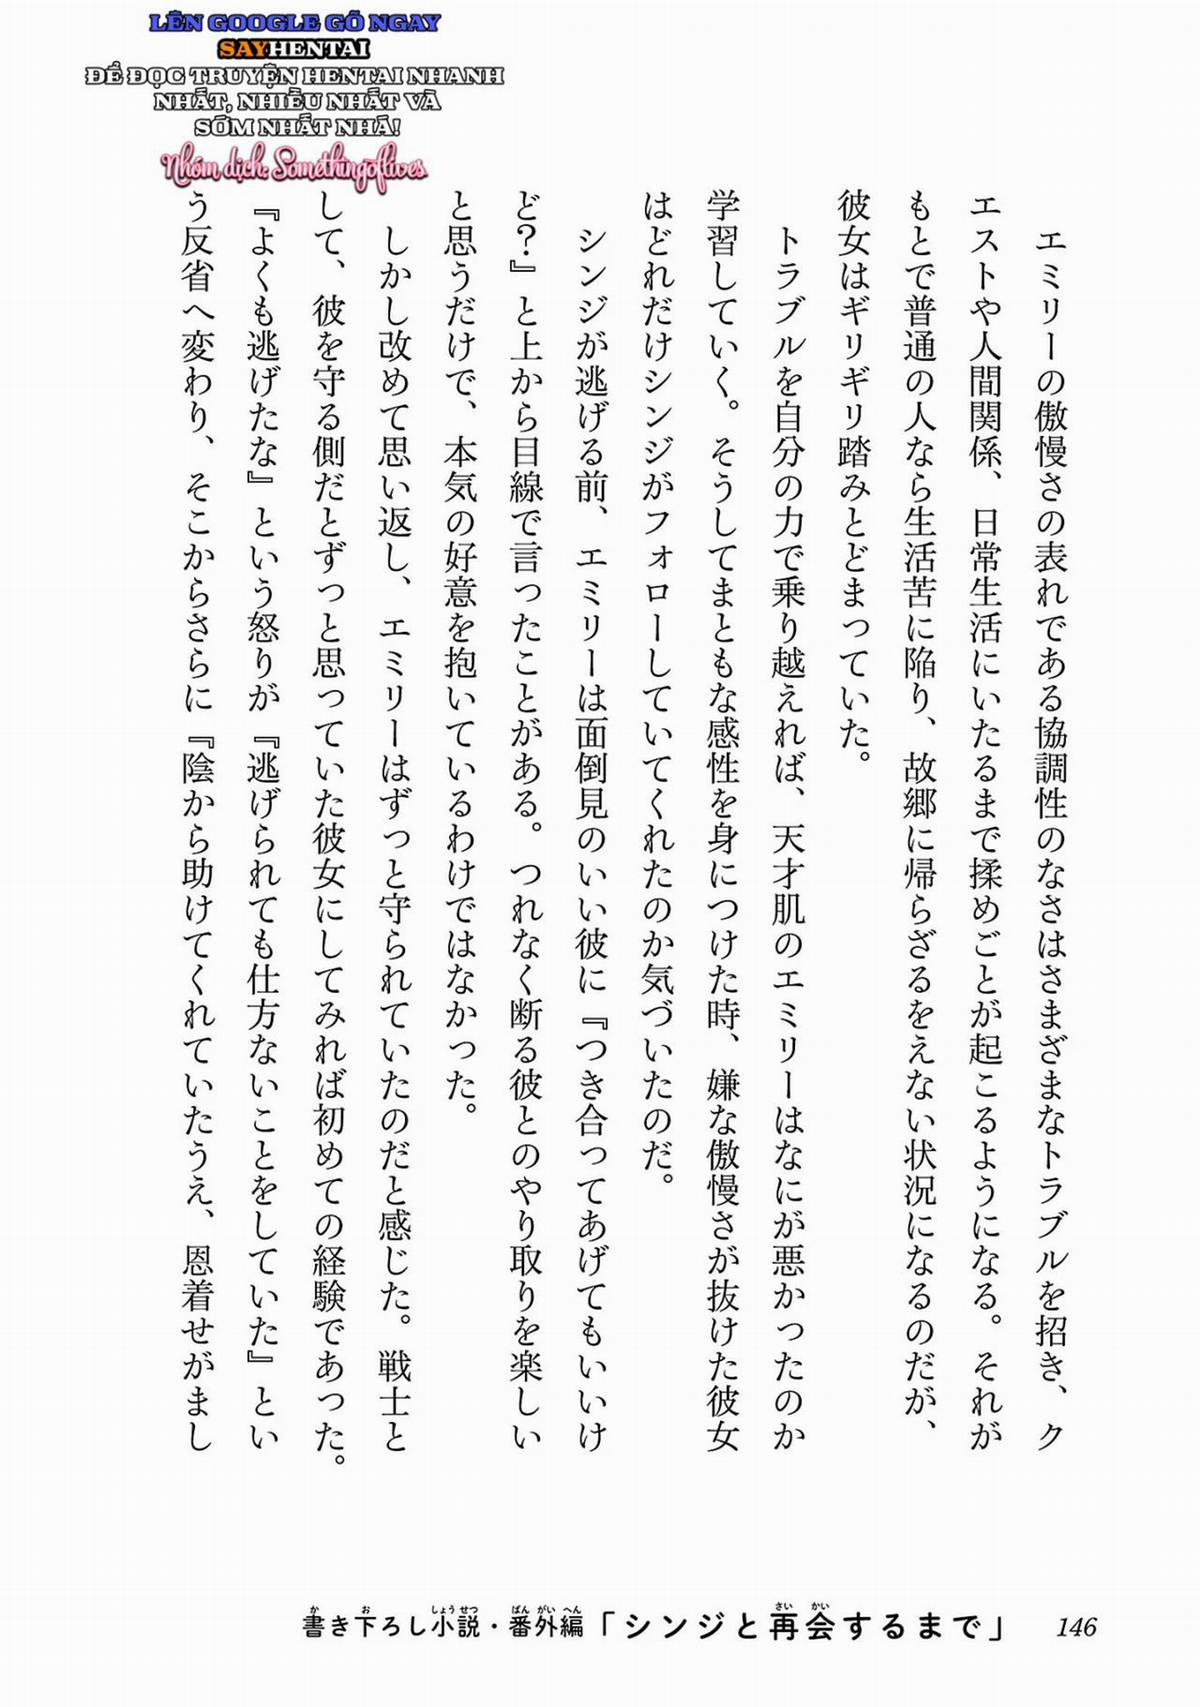 LÊN GOOGLE GÕ NGAY
SAYHENTAI
ĐỂ ĐỌC TRUYỆN HENTAI NHANH
NHẤT, NHIỀU NHẤT VÀ
SỚM NHẤT NHÁ!
Nhóm dịch: Somethingoflives
エミリーの傲慢さの表れである協調性のなさはさまざまなトラブルを招き、ク
エストや人間関係、日常生活にいたるまで揉めごとが起こるようになる。それが
もとで普通の人なら生活苦に陥り、故郷に帰らざるをえない状況になるのだが、
彼女はギリギリ踏みとどまっていた。
トラブルを自分の力で乗り越えれば、天才肌のエミリーはなにが悪かったのか
学習していく。そうしてまともな感性を身につけた時、嫌な傲慢さが抜けた彼女
はどれだけシンジがフォローしていてくれたのか気づいたのだ。
シンジが逃げる前、エミリーは面倒見のいい彼に『つき合ってあげてもいいけ
ど？』と上から目線で言ったことがある。つれなく断る彼とのやり取りを楽しい
と思うだけで、本気の好意を抱いているわけではなかった。
しかし改めて思い返し、エミリーはずっと守られていたのだと感じた。戦士と
して、彼を守る側だとずっと思っていた彼女にしてみれば初めての経験であった。
『よくも逃げたな』という怒りが『逃げられても仕方ないことをしていた』とい
う反省へ変わり、そこからさらに『陰から助けてくれていたうえ、恩着せがまし
書き下ろし小説・番外編「シンジと再会するまで」 146